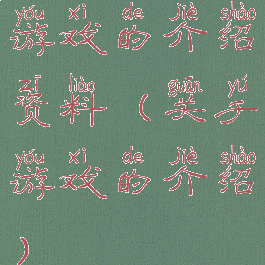 yóu xì de jiè shào
游戏的介绍
zī liào guān yú
资料(关于
yóu xì de jiè shào
游戏的介绍
)